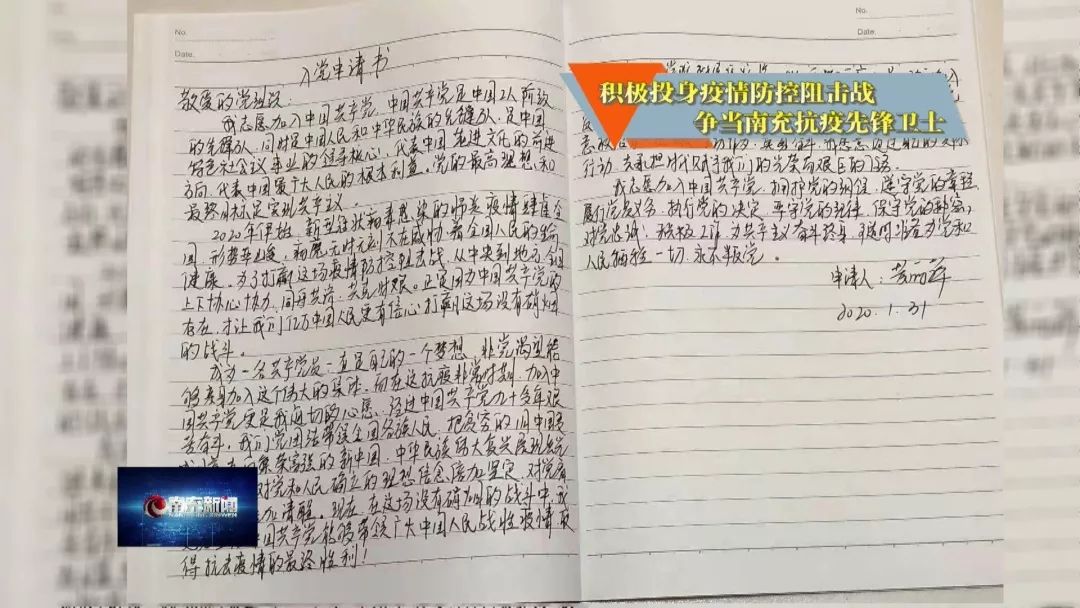 No.
Date.
入党申请书
敬爱的党组织:
我志愿加入中国共产党,中国共产党是中国工人阶级
的先锋队,同时是中国人民和中华民族的先锋队,是中国
特色社会主义事业的领导核心,代表中国先进文化的前进
方向,代表中国最广大人民的根本利益。党的最高理想和
最终目标是实现共产主义。
2020年伊始,新型冠状病毒感染的肺炎疫情肆虐全
国,形势严峻,病魔无时无刻不在威胁着全国人民的生命
健康。为了打赢这场疫情防控阻击战,从中央到地方,全国
上下协心协力,同舟共济,共克时艰。正是因为中国共产党的
存在,才让我们亿万中国人民更有信心打赢这场没有硝烟
的战斗。
成为一名共产党员一直是自己的一个梦想,非常渴望能
够参加入这个伟大的集体。而在这抗疫非常时期,加入中
国共产党更是我迫切的心愿。经过中国共产党九十多年艰
苦奋斗,我们党团结带领全国各族人民,把贫穷的旧中国
繁荣富强的新中国,中华民族伟大复兴展现
对党和人民确立的理想信念倍加坚定,对党
清醒。现在,在这场没有硝烟的战斗中,我
国共产党能够带领广大中国人民战胜疫情,取
得抗击疫情的最终胜利!
南充新闻
NANCHONG XINWEN
No.
Date.
积极投身疫情防控阻击战
争当南充抗疫先锋卫士
行动,去承担时代赋予我们的光荣而艰巨的
我志愿加入中国共产党,拥护党的纲领,遵守党的章程,
履行党员义务,执行党的决定,严守党的纪律,保守党的秘密,
对党忠诚,积极工作,为共产主义奋斗终身,随时准备为党和
人民牺牲一切,永不叛党。
申请人:
2020.1.31